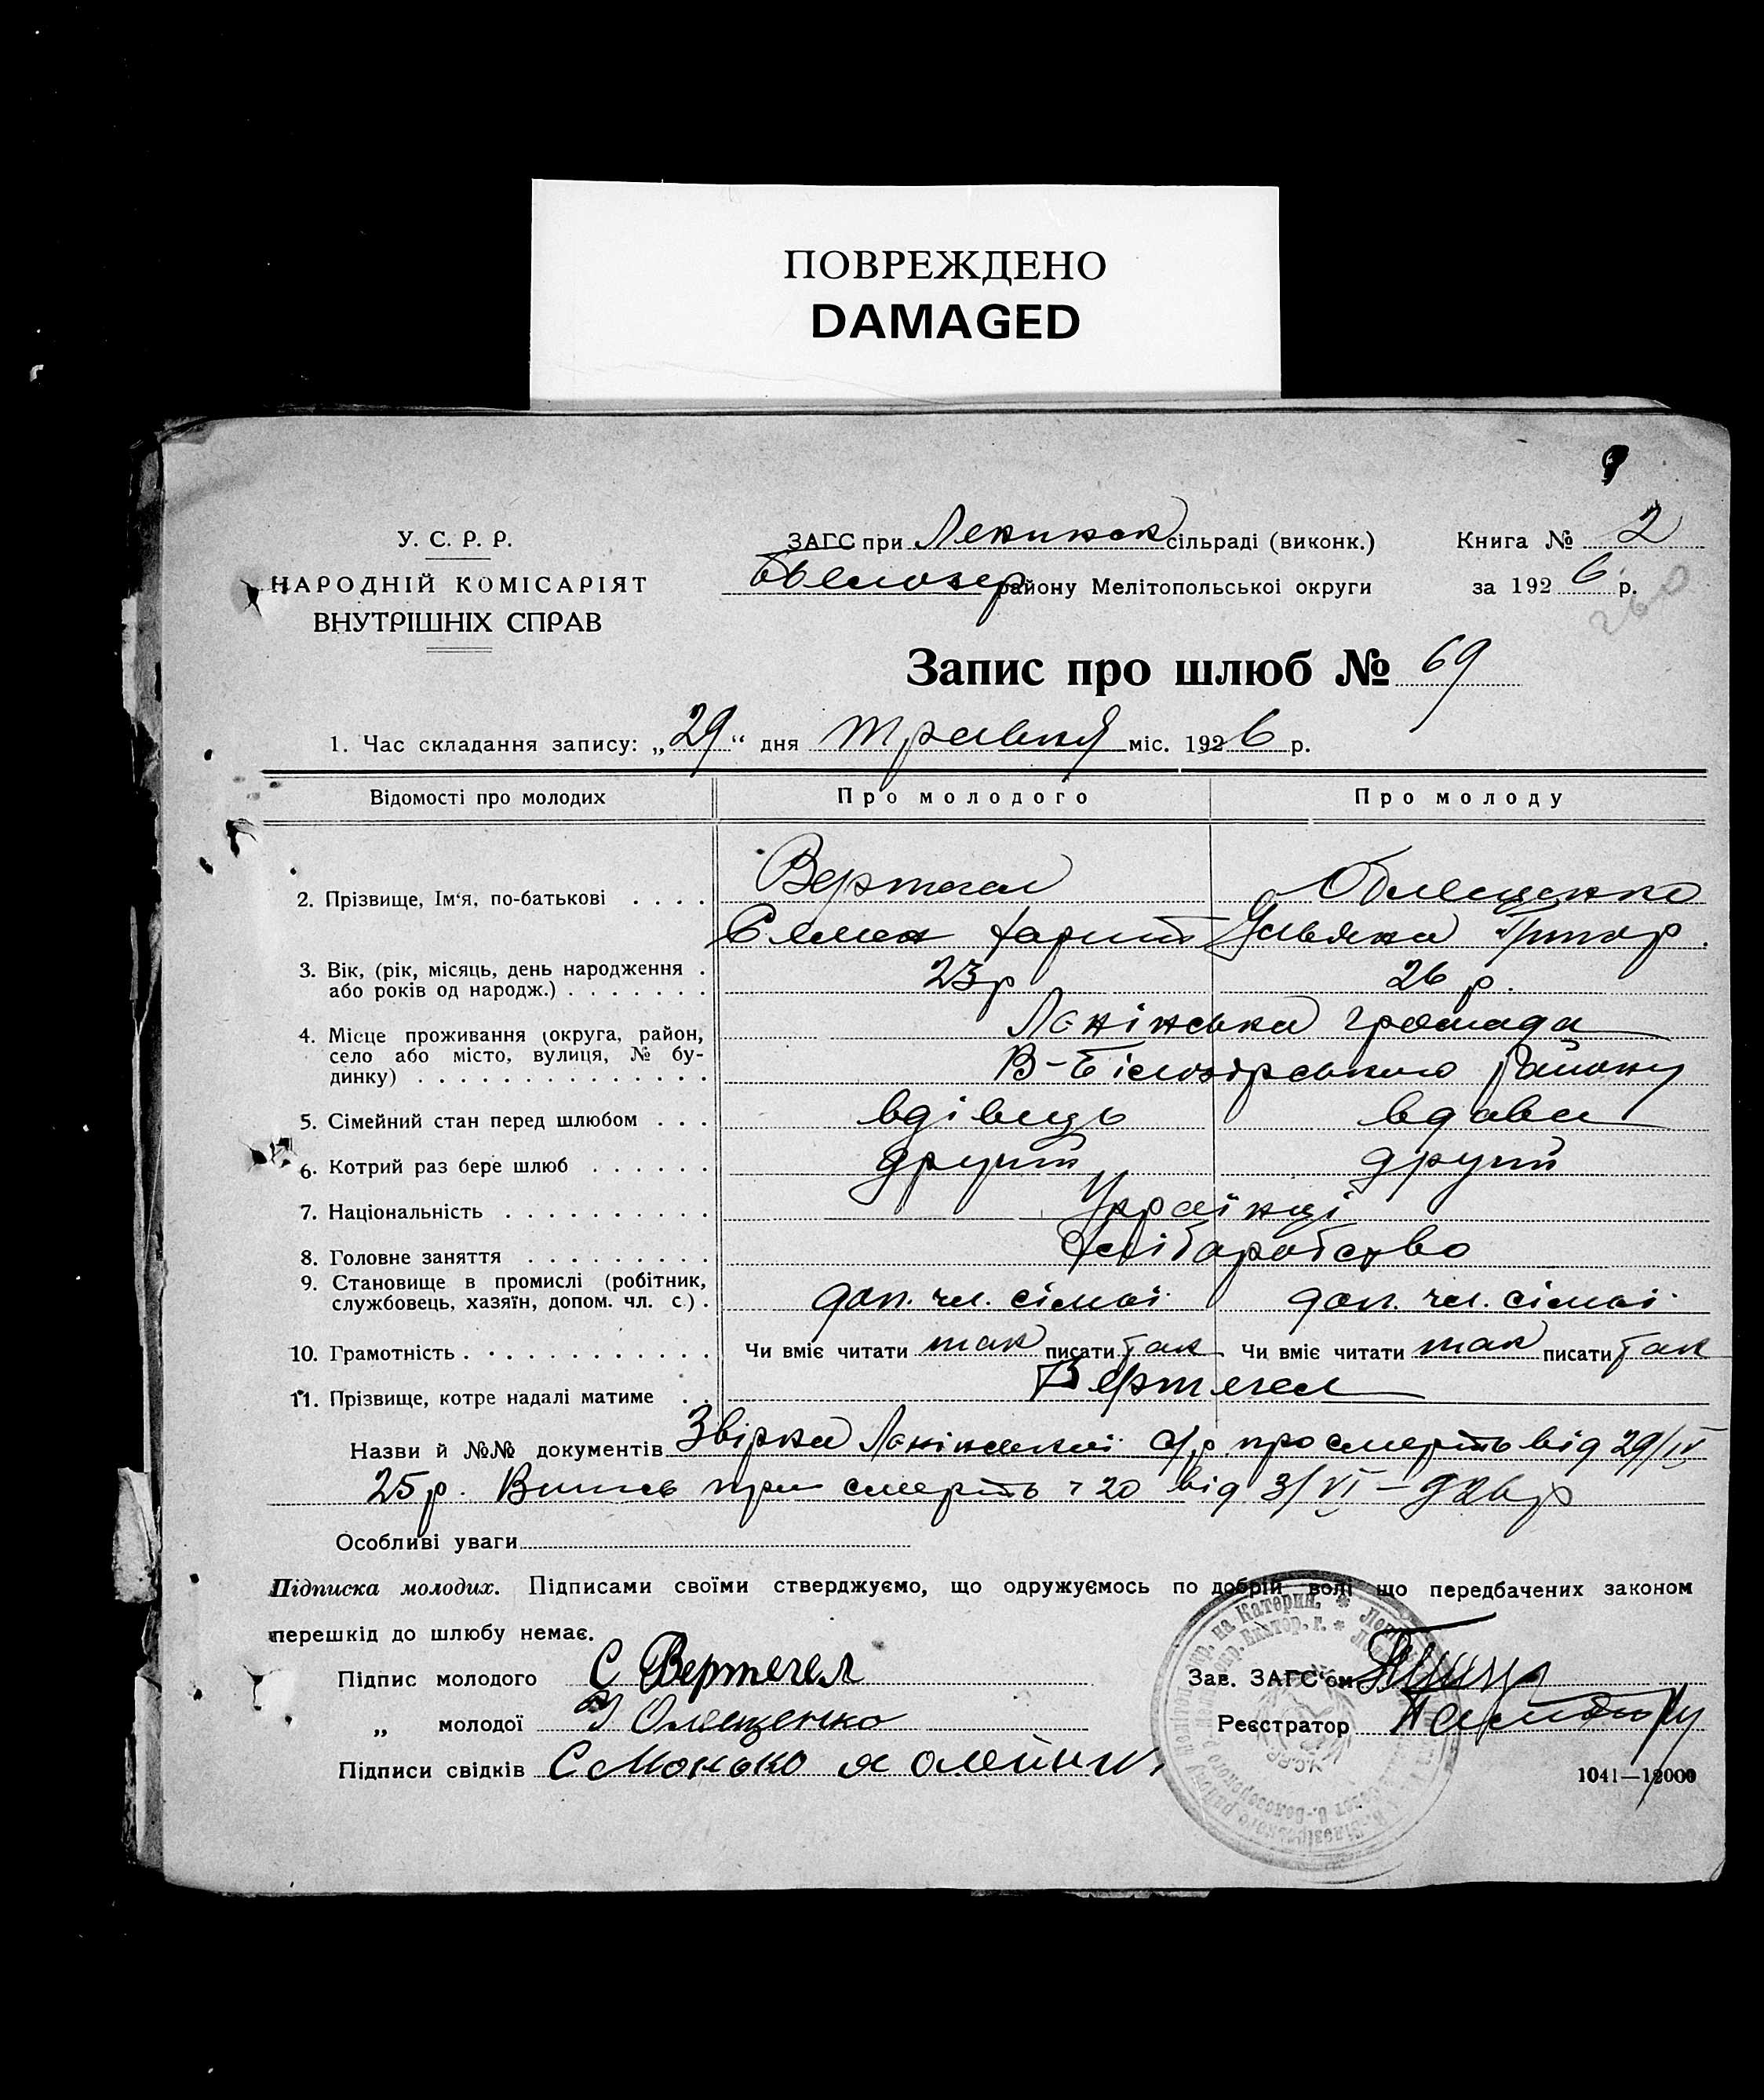 ПОВРЕЖДЕНО
DAMAGED
У. С. Р. Р.
НАРОДНІЙ КОМІСАРІЯТ
ВНУТРІШНІХ СПРАВ
ЗАГС при сільраді (виконк.)
району Мелітопольської округи
Книга № 2
за 1926 р.
260
Запис про шлюб № 69
1. Час складання запису: „29“ дня травня міс. 1926 р.
Відомості про молодих Про молодого Про молоду
2. Прізвище, Ім‘я, по-батькові . . . . Вертегел
Семен Харит Ульяна
3. Вік, (рік, місяць, день народження . 23 р 26 р.
або років од народж.) . . . . . . .
4. Місце проживання (округа, район, Ленінська громада
село або місто, вулиця, № бу-
динку) . . . . . . . . . . . . . . В-Білозірського району
5. Сімейний стан перед шлюбом . . . вдівець вдова
6. Котрий раз бере шлюб . . . . . . другий другий
7. Національність . . . . . . . . . . Українці
8. Головне заняття . . . . . . . . . Хліборобство
9. Становище в промислі (робітник,
службовець, хазяїн, допом. чл. с.) . доп. чл. сімьї доп. чл. сімьї
10. Грамотність . . . . . . . . . . . . Чи вміє читати так писати так Чи вміє читати так писати так
11. Прізвище, котре надалі матиме . . Вертегел
Назви й №№ документів Ленінської с/р про смерть від 29/IV
25 р. Випись про смерть 20 від 3/VI – 926 р
Особливі уваги
Підписка молодих. Підписами своїми стверджуємо, що одружуємось по добрій волі що передбачених законом
перешкід до шлюбу немає.
Підпис молодого С Вертегел
„ молодої Олещенко
Підписи свідків С Монько
Зав. ЗАГС‘ом
Реєстратор
1041—12000